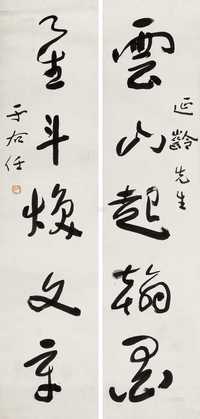 延齡先生
雲山起翰墨
星斗煥文章
于右任